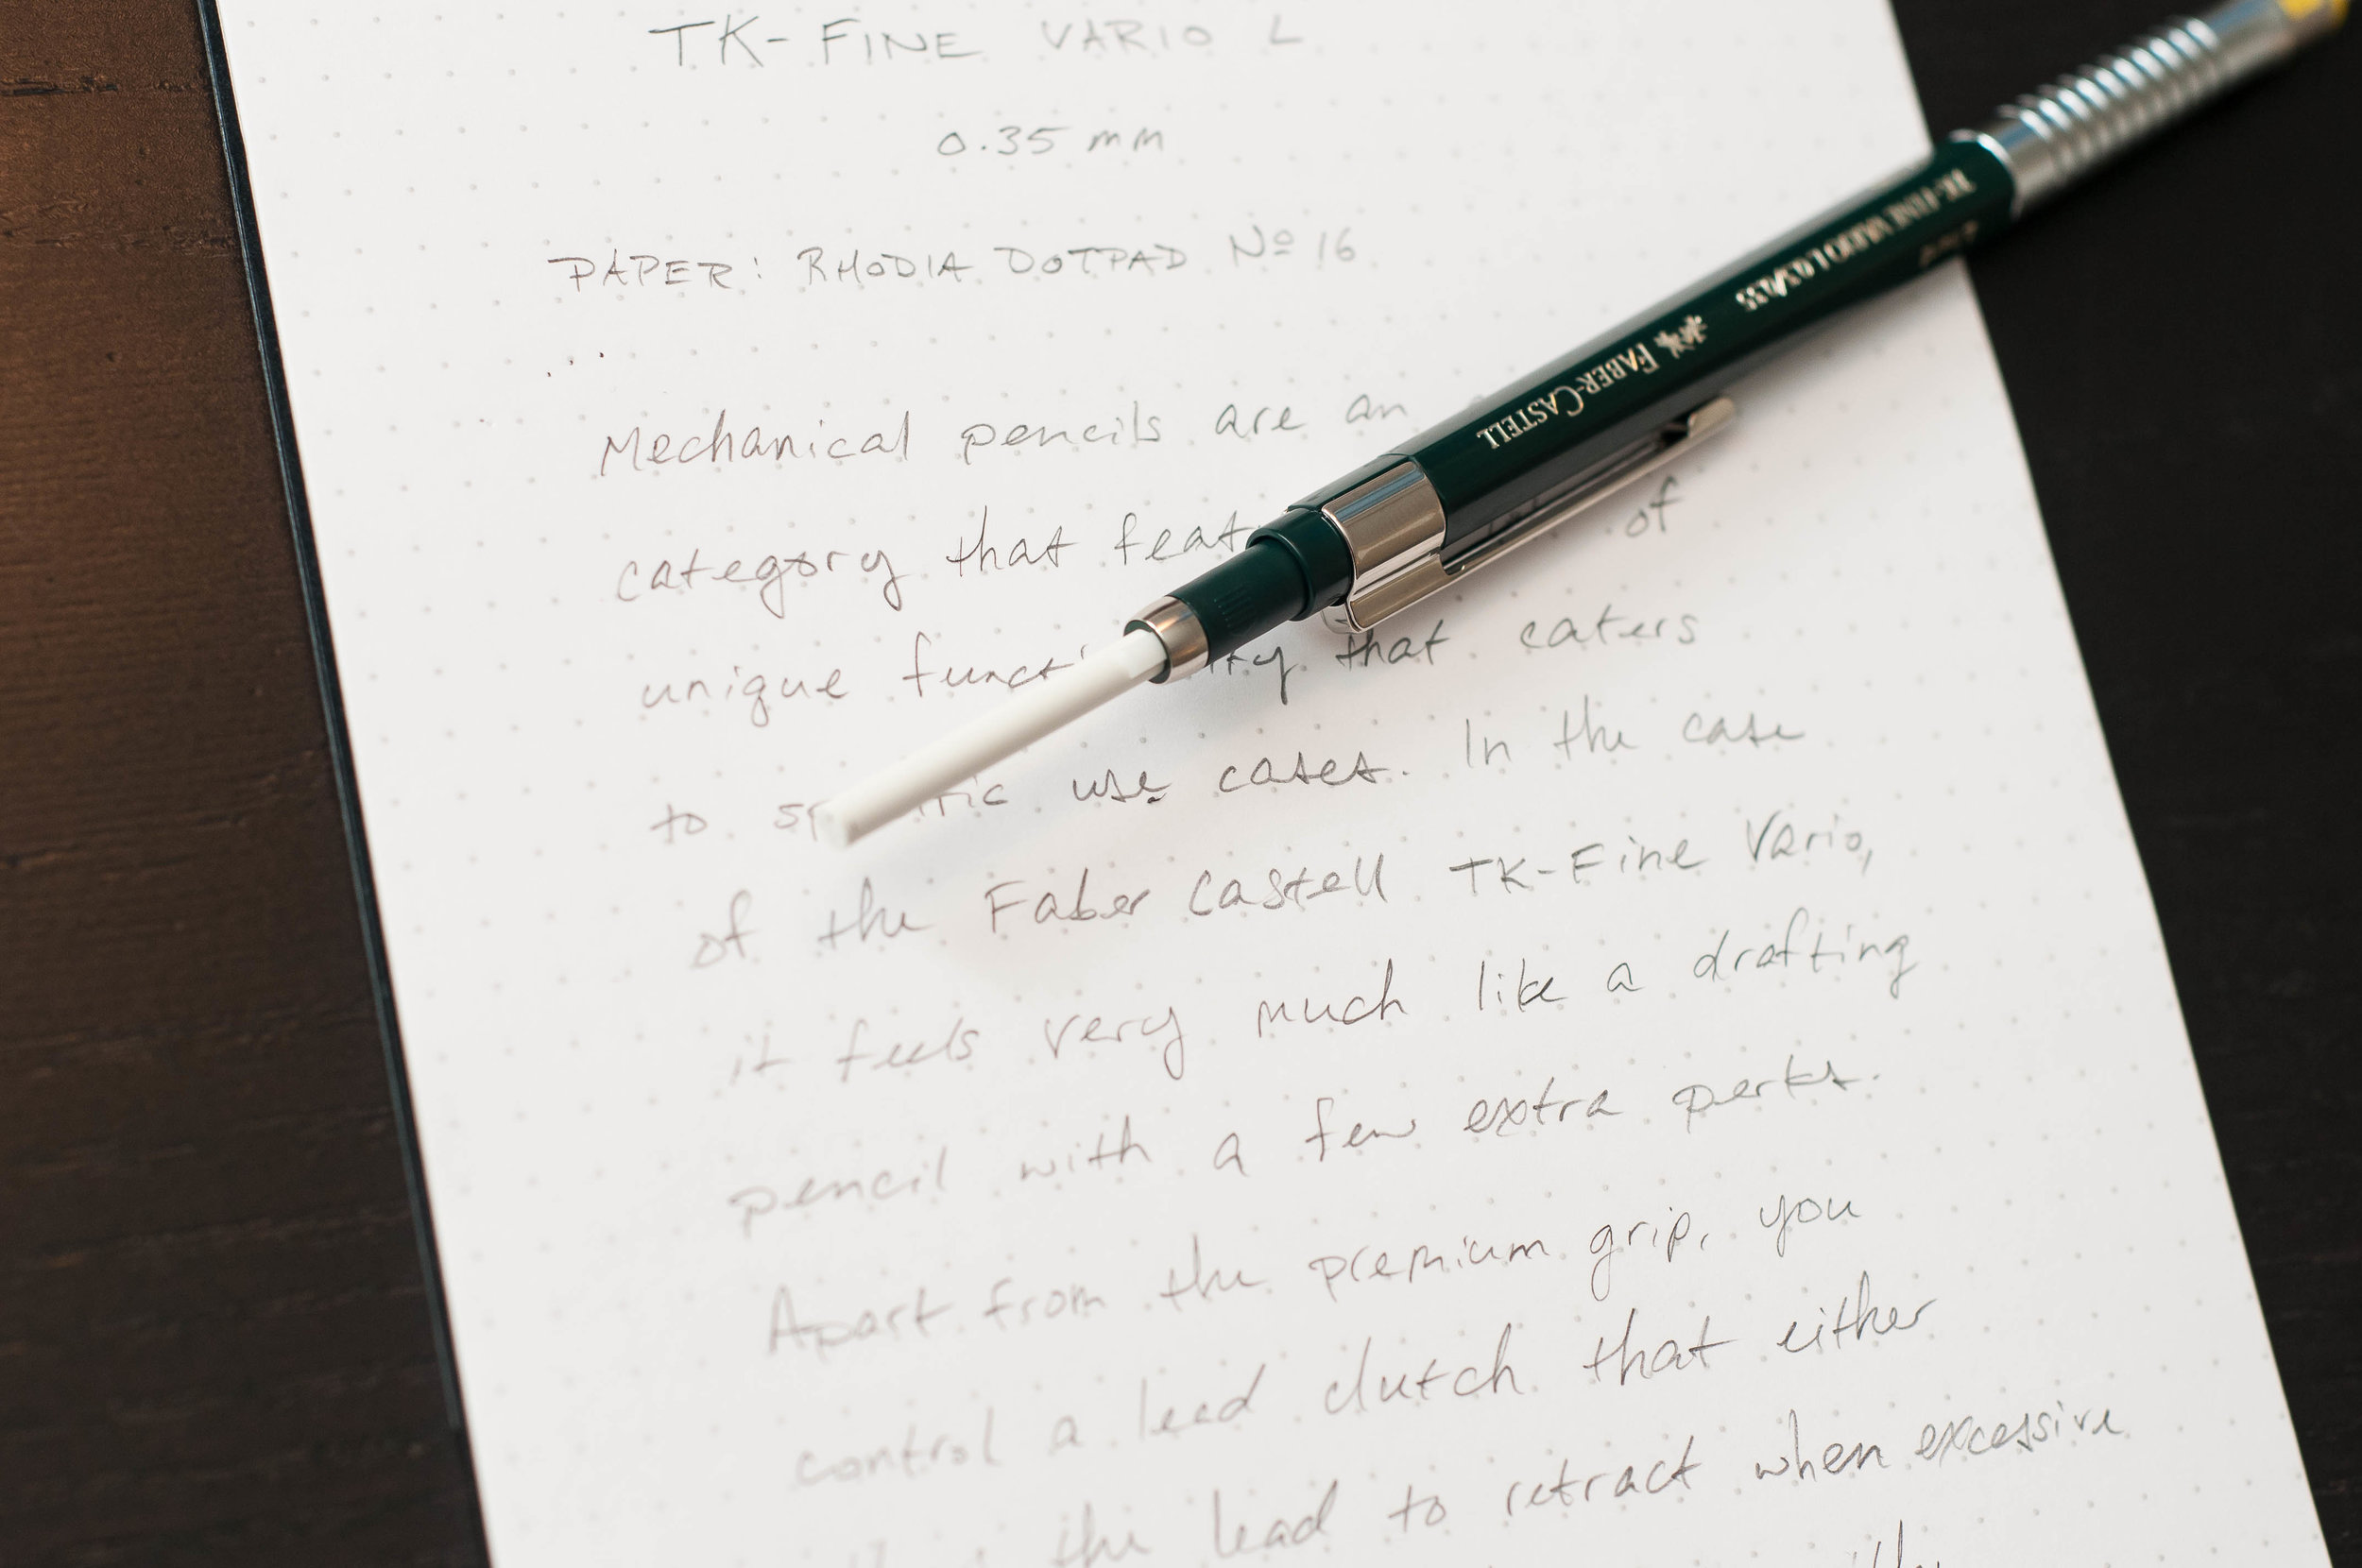 TK-FINE VARIO L
0.35 mm
PAPER: RHODIA DOTPAD Nº 16
Mechanical pencils are an
category that feat of
unique funct ity that caters
to sp ific use cases. In the case
of the Faber Castell TK-Fine Vario,
it feels very much like a drafting
pencil with a few extra perks.
Apart from the premium grip, you
control a lead clutch that either
the lead to retract when excessive
FABER-CASTELL
TK-FINE VARIO L 0.35/0.35